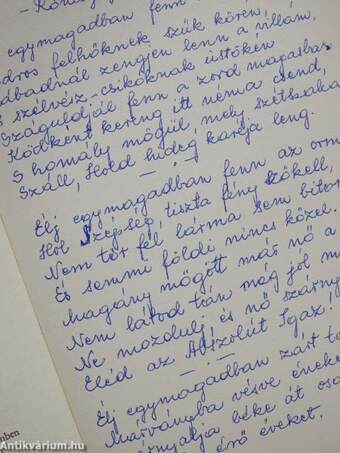 egymagadban fenn
felhőknek szűk körén,
zengjen lenn a villám,
szélvész-csikóknak üstökén
Száguldjál fenn a zord magasba
Ködként kereng itt néma csend,
S homály mögül, mely szétszakad
Száll, Hold hideg karéja leng.
- . -
Élj egymagadban fenn az orm
Hol Szépség, tiszta fény székell,
Nem tör fel, bárma sem bitor
És semmi földi nincs közel.
Magány mögött már nő a
Nem látod tán még jól
Ne mozdulj, és nő szárny
Eléd az Abszolút Igaz!
- . -
Élj egymagadban zárt to
Márványba vésve éneke
béke át
érő éveket.
mben
Antikvárium.hu